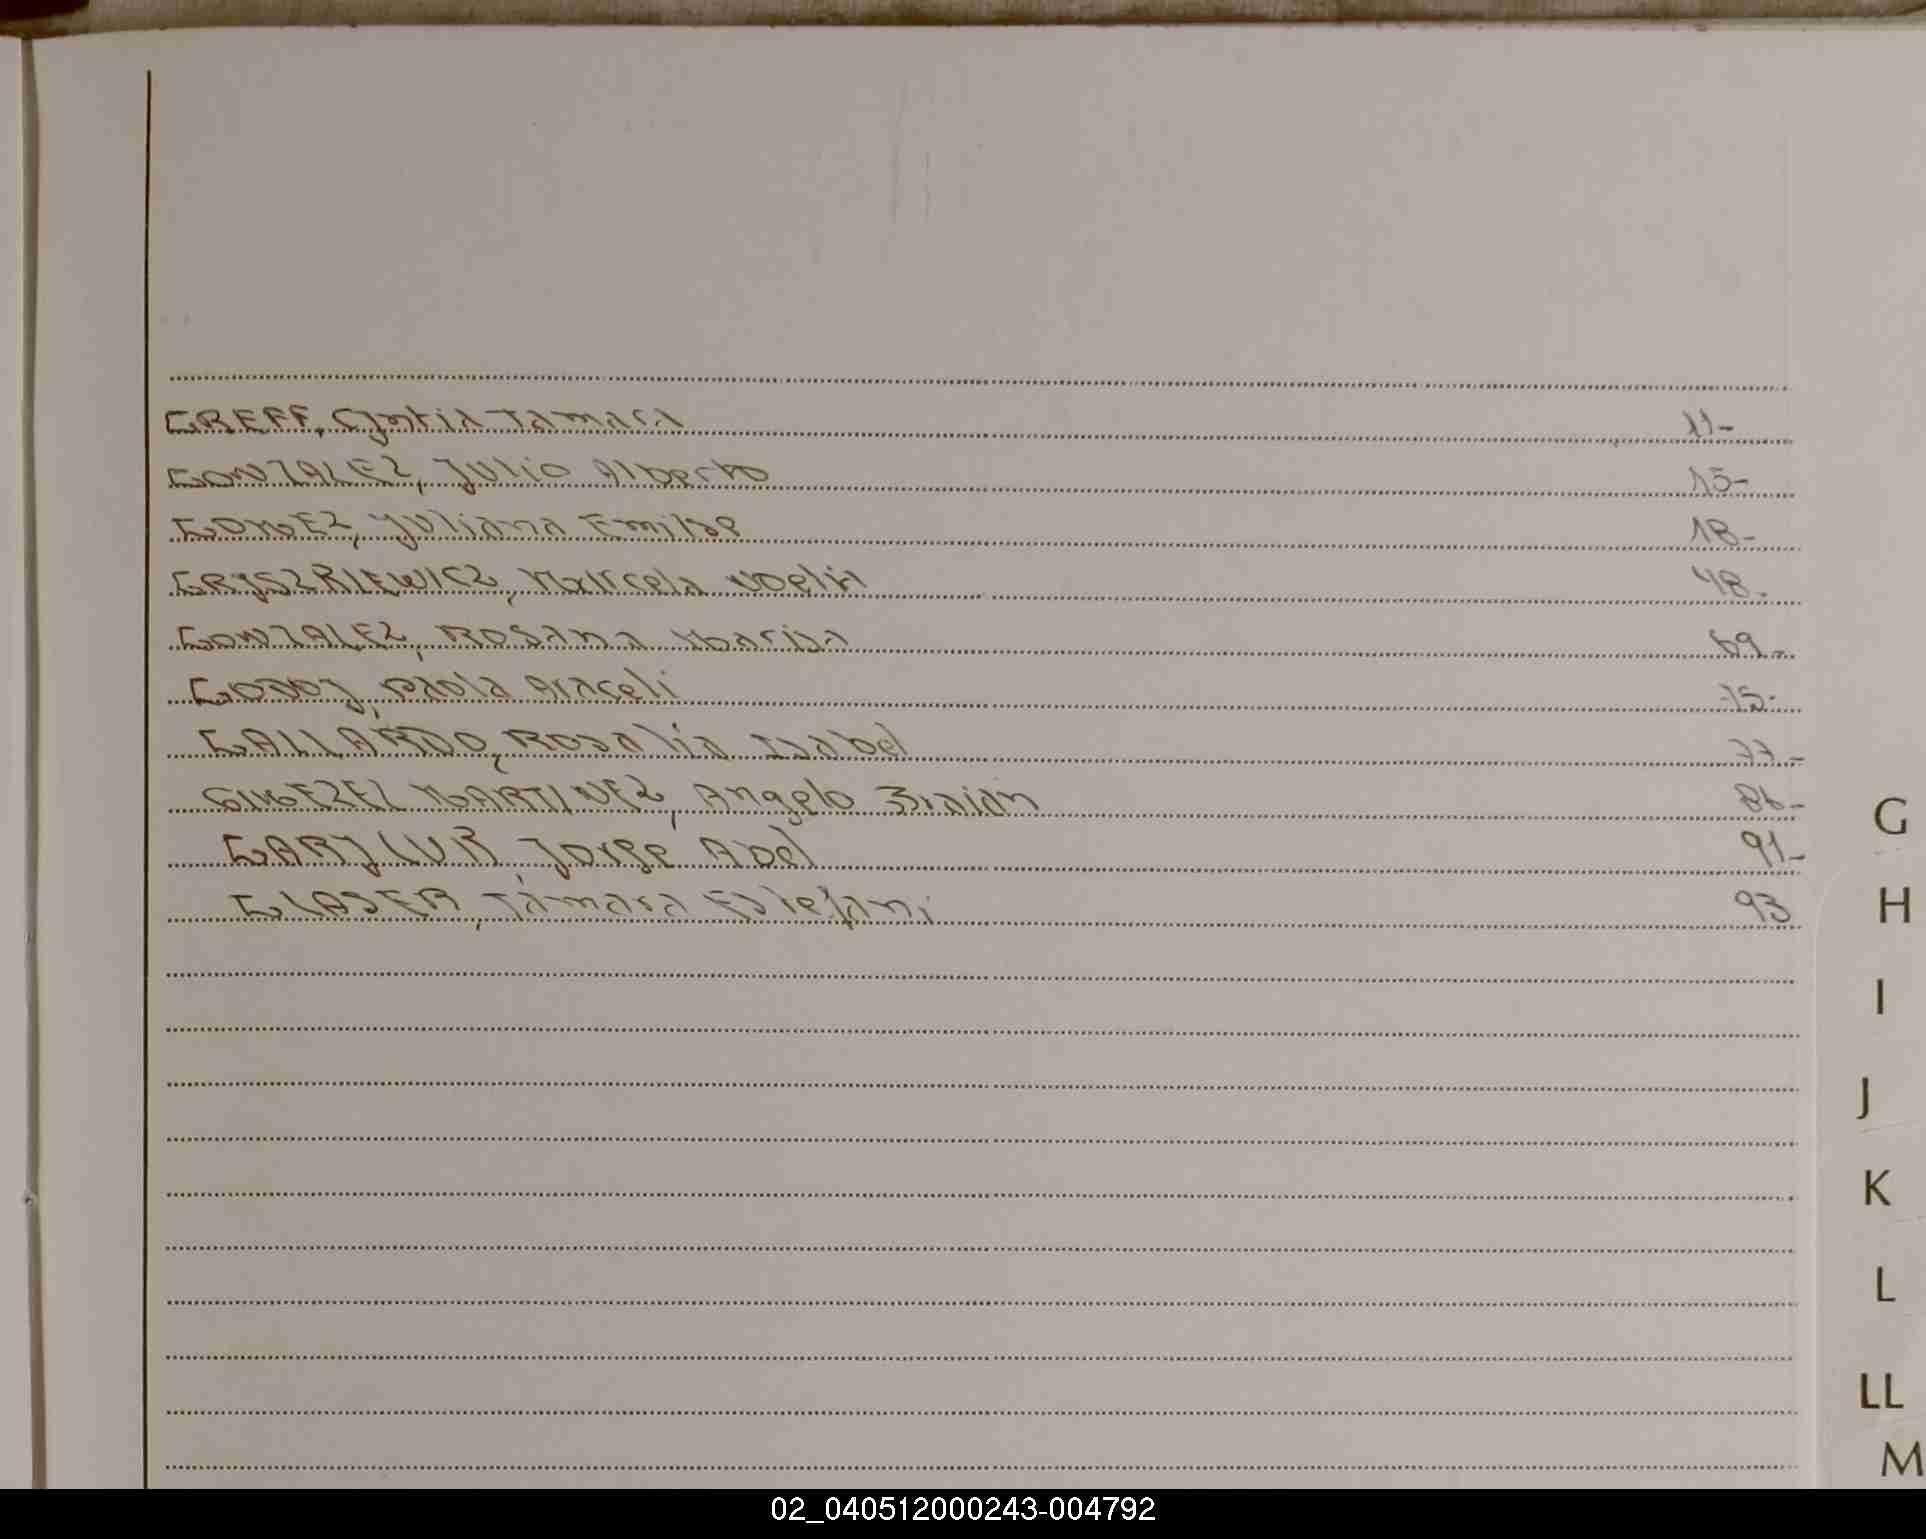 GREFF, Cyntia Tamara 11-
GONZALEZ, Julio Alberto 15-
GOMEZ, Yuliana Emilse 18-
Marcela Noelia 48-
GONZALEZ, Rosana Marisa 69-
GODOY, Paola Araceli
GALLARDO, Rosalia Isabel 77-
MARTINEZ, Angelo Braian 86-
Jorge Abel 91-
GLASER, Tamara Estefani 93
G
H
I
J
K
L
LL
M
02_040512000243-004792